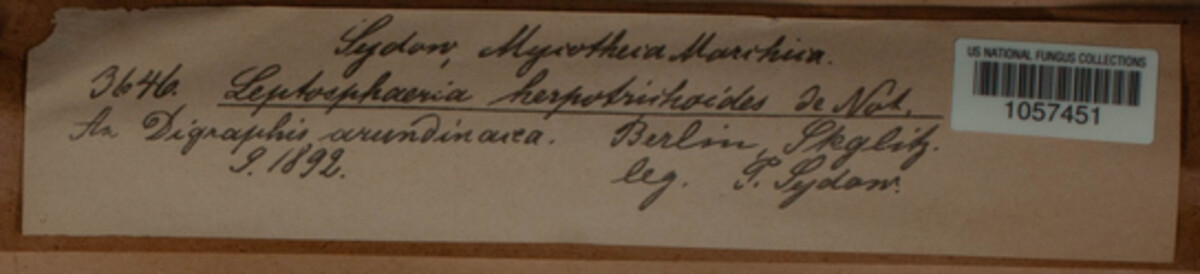 Sydow, Mycotheca Marchica.
3646. Leptosphaeria herpotrichoides de Not.
An Digraphis arundinacea. Berlin, Skglitz.
9. 1892. leg. P. Sydow.
US NATIONAL FUNGUS COLLECTIONS
1057451